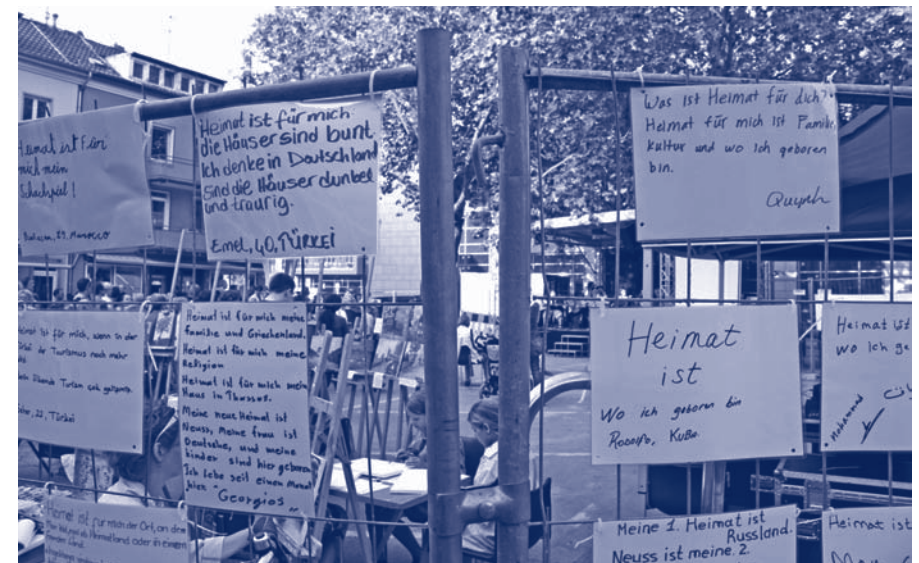 Heimat ist für
mich mein
Schachspiel!
29, Marocco
Heimat ist für mich
die Häuser sind bunt.
Ich denke in Deutschland
sind die Häuser dunkel
und traurig.
Emel, 40, Türkei
Was ist Heimat für dich?
Heimat für mich ist Familie,
Kultur und wo ich geboren
bin.
Quynh
Heimat ist für mich, wenn in der
Türkei der Tourismus noch mehr
22, Türkei
Heimat ist für mich meine
Familie und Griechenland.
Heimat ist für mich meine
Religion
Heimat ist für mich mein
Haus in
Meine neue Heimat ist
Neuss, Meine frau ist
Deutsche, und meine
kinder sind hier geboren
Ich lebe seit einen Monat
Georgios
Heimat
ist
Wo ich geboren bin
Kuba.
Heimat ist
wo ich ge
Mohammad
Heimat ist für mich der Ort, an dem
Heimatland oder in einem
fremden Land.
Meine 1. Heimat ist
Russland.
Neuss ist meine 2.
Heimat ist